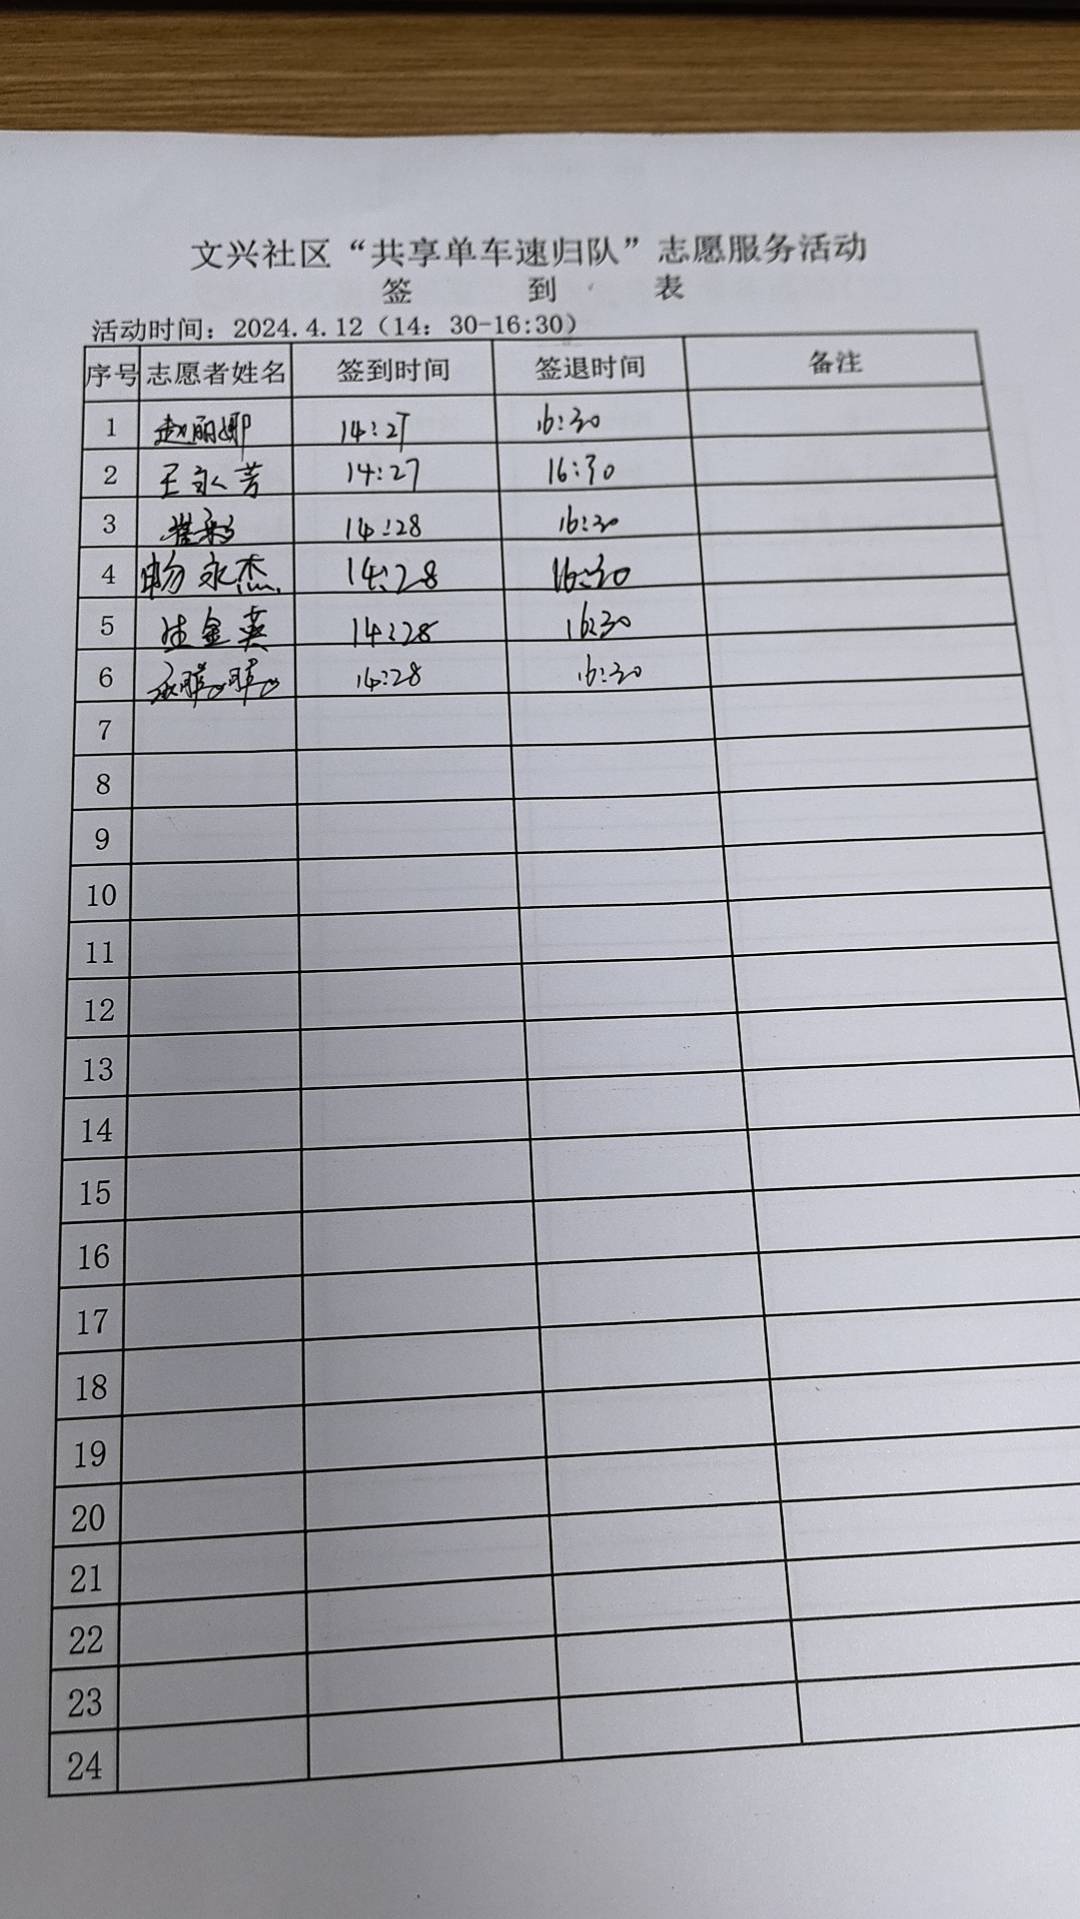 文兴社区“共享单车速归队”志愿服务活动
签 到 表
活动时间：2024.4.12（14：30-16:30）
序号 志愿者姓名 签到时间 签退时间 备注
1 赵丽娜 14:27 16:30
2 王永芳 14:27 16:30
3 崔彩 14:28 16:30
4 畅永杰 14:28 16:30
5 金英 14:28 16:30
6 14:28 16:30
7
8
9
10
11
12
13
14
15
16
17
18
19
20
21
22
23
24